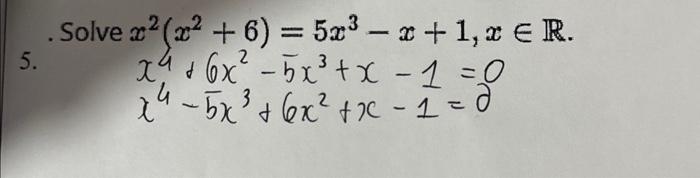 . Solve x²(x² + 6) = 5x³ − x + 1, x ∈ ℝ.
5.
x⁴ + 6x² − 5x³ + x − 1 = 0
x⁴ − 5x³ + 6x² + x − 1 = 0